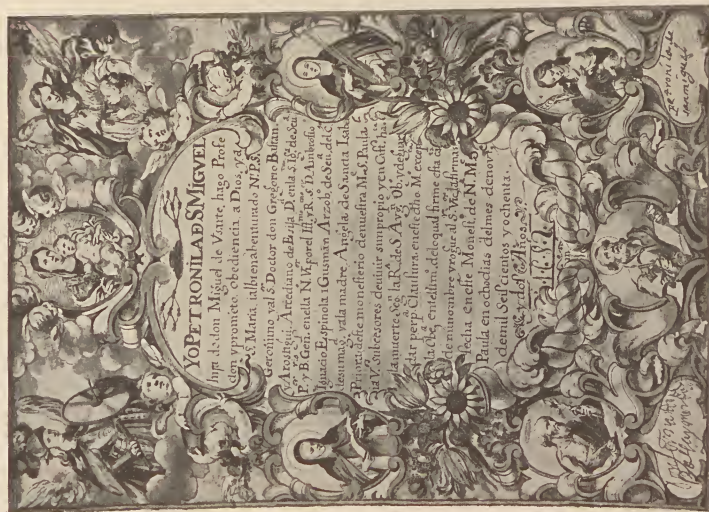 YO PETRONILA DE S MIGVEL
hija de don Miguel de Varte, hago Profe
sion y prometo Obediencia a Dios, y a
S. Maria i al bienabenturado N. P. S.
Geronimo y al S. Doctor don Gregorio Bastan
y Arostegui, Arcediano de Ezija D. en la S. Ig. de Seu.
Pr. B. Gen. en ella N. V. por el Ill. y R. S. D. Ambrosio
Ignacio Espinola i Guzman Arzob. de Seu. del C.
de su mag. y a la madre Angela de Sancta Isab.
Priora deste monesterio de nuestra M. S. Paula
i a V. sucesores de viuir sin propio y en Cast. has
la muerte seg. la R. de S. Aug. Ob. y de guar
dar perp. Clausura. en fe de lo
la firme
de mi nonbre y rogue al S. Vic. la firmase
fecha en este Monest. de N. M. S.
Paula en ocho dias del mes de nov
de mil Seiscientos y ochenta.
Petronila de
san miguel